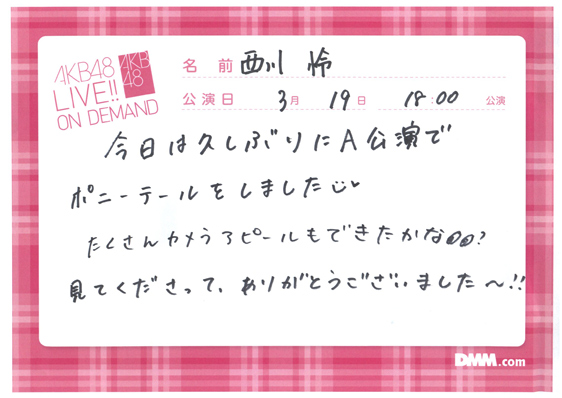 AKB48
LIVE!!
ON DEMAND
AKB
48
名前 西川 怜
公演日 3月 19日 18:00 公演
今日は久しぶりにA公演で
ポニーテールをしました
たくさんカメラアピールもできたかな??
見てくださって、ありがとうございました〜!!
DMM.com